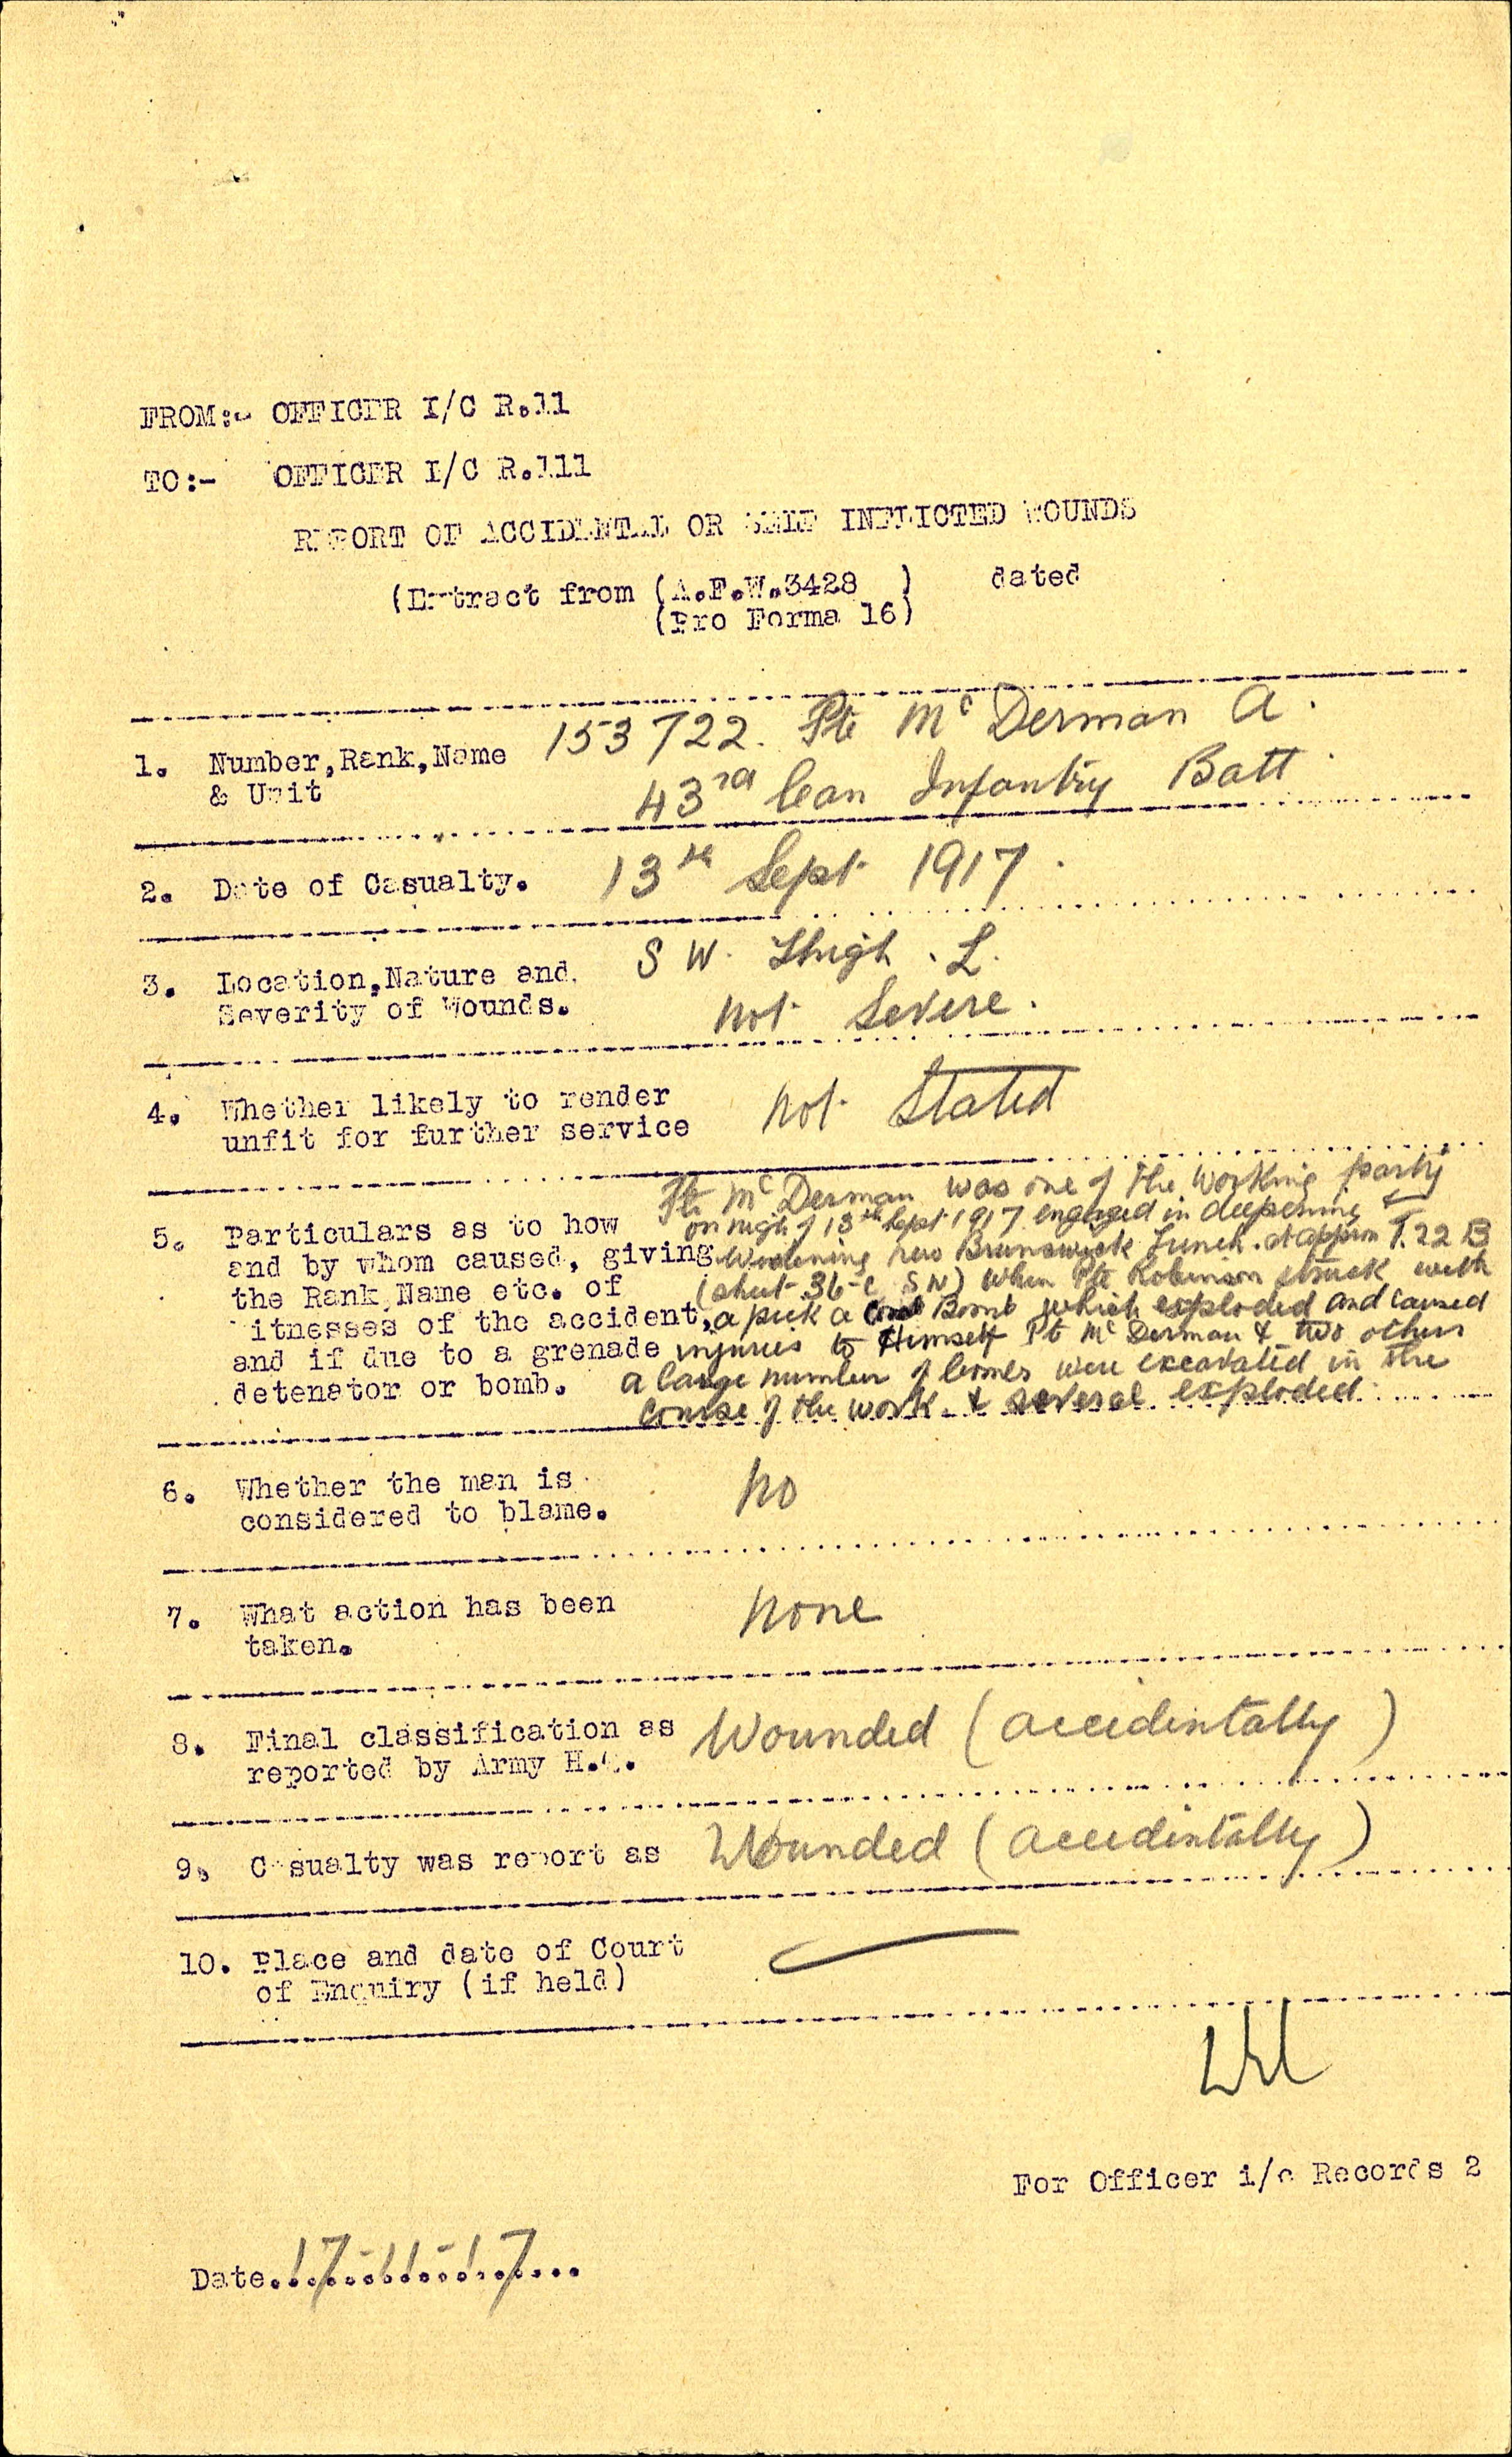 FROM:- OFFICER I/C R.11
TO:- OFFICER I/C R.111
REPORT OF ACCIDENTAL OR SELF INFLICTED WOUNDS
(Extract from (A.F.W.3428 ) dated
(Pro Forma 16)
1. Number,Rank,Name 153722. Pte McDerman A.
& Unit 43rd Can Infantry Batt.
2. Date of Casualty. 13th Sept. 1917.
3. Location,Nature and S W. Thigh. L.
Severity of Wounds. not Severe.
4. Whether likely to render not Stated
unfit for further service
Pte McDerman was one of the working party
5. Particulars as to how on night of 13th Sept 1917 engaged in deepening &
and by whom caused, giving Widening new Brunswick Trench. at approx T.22 B
the Rank,Name etc. of (sheet 36 c SW) when Pte Robinson struck with
witnesses of the accident, a pick a Bomb which exploded and caused
and if due to a grenade injuries to Himself Pt McDerman & two others
detenator or bomb. a large number of bombs were excavated in the
course of the work & several exploded.
6. Whether the man is no
considered to blame.
7. What action has been none
taken.
8. Final classification as Wounded (accidentally)
reported by Army H.Q.
9. Casualty was report as Wounded (accidentally)
10. Place and date of Court
of Enquiry (if held)
For Officer i/c Records 2
Date 17-11-17